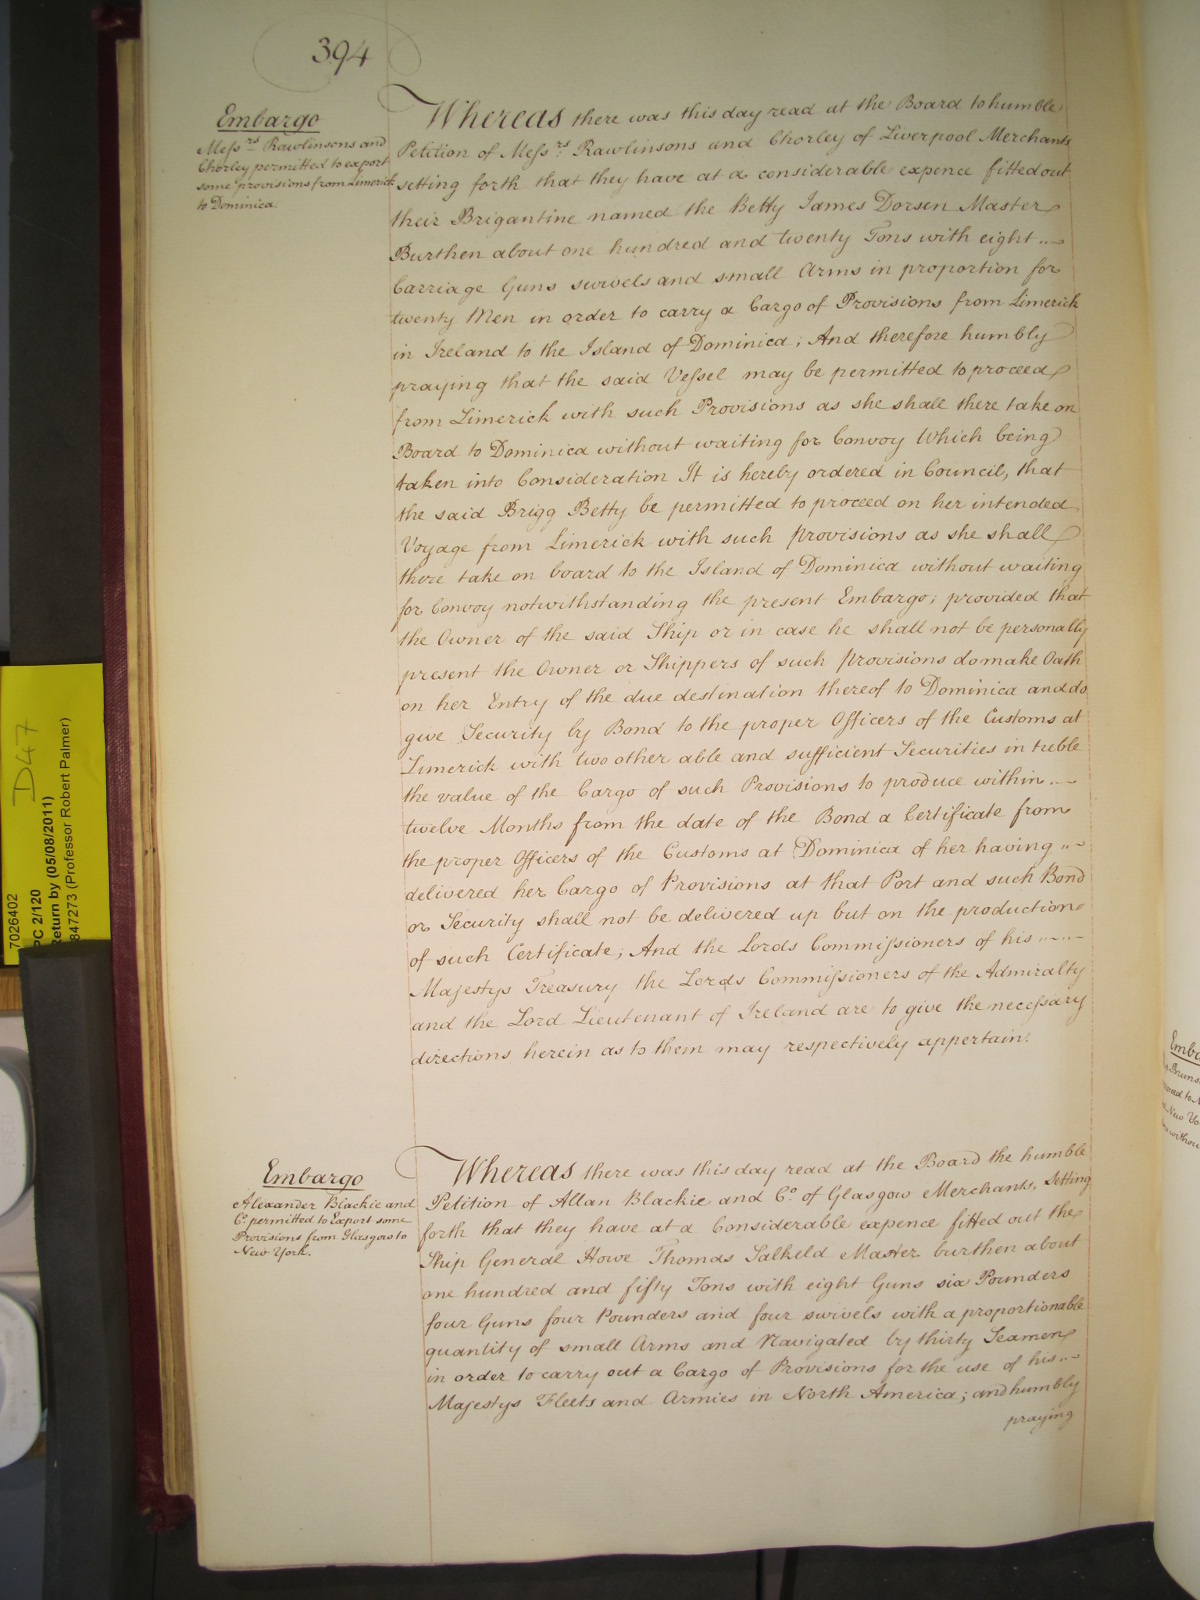 394
Embargo
Messrs. Rawlinsons and
Chorley permitted to export
some provisions from Limerick
to Dominica.
Whereas there was this day read at the Board to humble
Petition of Messrs. Rawlinsons and Chorley of Liverpool Merchants
setting forth that they have at a considerable expence fitted out
their Brigantine named the Betty James Dorsen Master
Burthen about one hundred and twenty Tons with eight
Carriage Guns swivels and small Arms in proportion for
twenty Men in order to carry a Cargo of Provisions from Limerick
in Ireland to the Island of Dominica; And therefore humbly
praying that the said Vessel may be permitted to proceed
from Limerick with such Provisions as she shall there take on
Board to Dominica without waiting for Convoy Which being
taken into Consideration It is hereby ordered in Council, that
the said Brigg Betty be permitted to proceed on her intended
Voyage from Limerick with such Provisions as she shall
there take on board to the Island of Dominica without waiting
for Convoy notwithstanding the present Embargo; provided that
the Owner of the said Ship or in case he shall not be personally
present the Owner or Shippers of such Provisions do make Oath
on her Entry of the due destination thereof to Dominica and do
give Security by Bond to the proper Officers of the Customs at
Limerick with two other able and sufficient Securities in treble
the value of the Cargo of such Provisions to produce within
twelve Months from the date of the Bond a Certificate from
the proper Officers of the Customs at Dominica of her having
delivered her Cargo of Provisions at that Port and such Bond
or Security shall not be delivered up but on the production
of such Certificate; And the Lords Commissioners of his
Majestys Treasury the Lords Commissioners of the Admiralty
and the Lord Lieutenant of Ireland are to give the necessary
directions herein as to them may respectively appertain.
Embargo
Alexander Blackie and
Co. permitted to Export some
Provisions from Glasgow to
New York.
Whereas there was this day read at the Board the humble
Petition of Allan Blackie and Co. of Glasgow Merchants, Setting
forth that they have at a Considerable expence fitted out the
Ship General Howe Thomas Salkeld Master burthen about
one hundred and fifty Tons with eight Guns six Pounders
four Guns four Pounders and four swivels with a proportionable
quantity of small Arms and Navigated by thirty Seamen
in order to carry out a Cargo of Provisions for the use of his
Majestys Fleets and Armies in North America; and humbly
praying
D47
7026402
PC 2/120
Return by (05/08/2011)
847273 (Professor Robert Palmer)